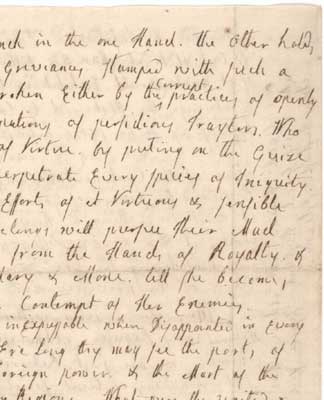 nch in the one Hand. the Other holds
Grievances Stamped with such a
roken Either by the Corrupt practices of openly
nations of perfidious Traytors. Who
of Virtue. by puting on the Guise
erpetrate Every Species of Iniquity.
Efforts of A Virtuous & sensible
elings will persue their Mad
from the Hands of Royalty. &
& More. till she become,
Contempt of Her Enemies.
inexpessable when Disappointed in Every
Ere Long they may see the ports, of
oreign power. & the Most of the